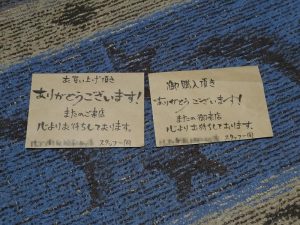 お買い上げ頂き
ありがとうございます!
またのご来店
心よりお待ちしております。
スタッフ一同
御購入頂き
ありがとうございます!
またの御来店
心よりお待ちしております。
スタッフ一同